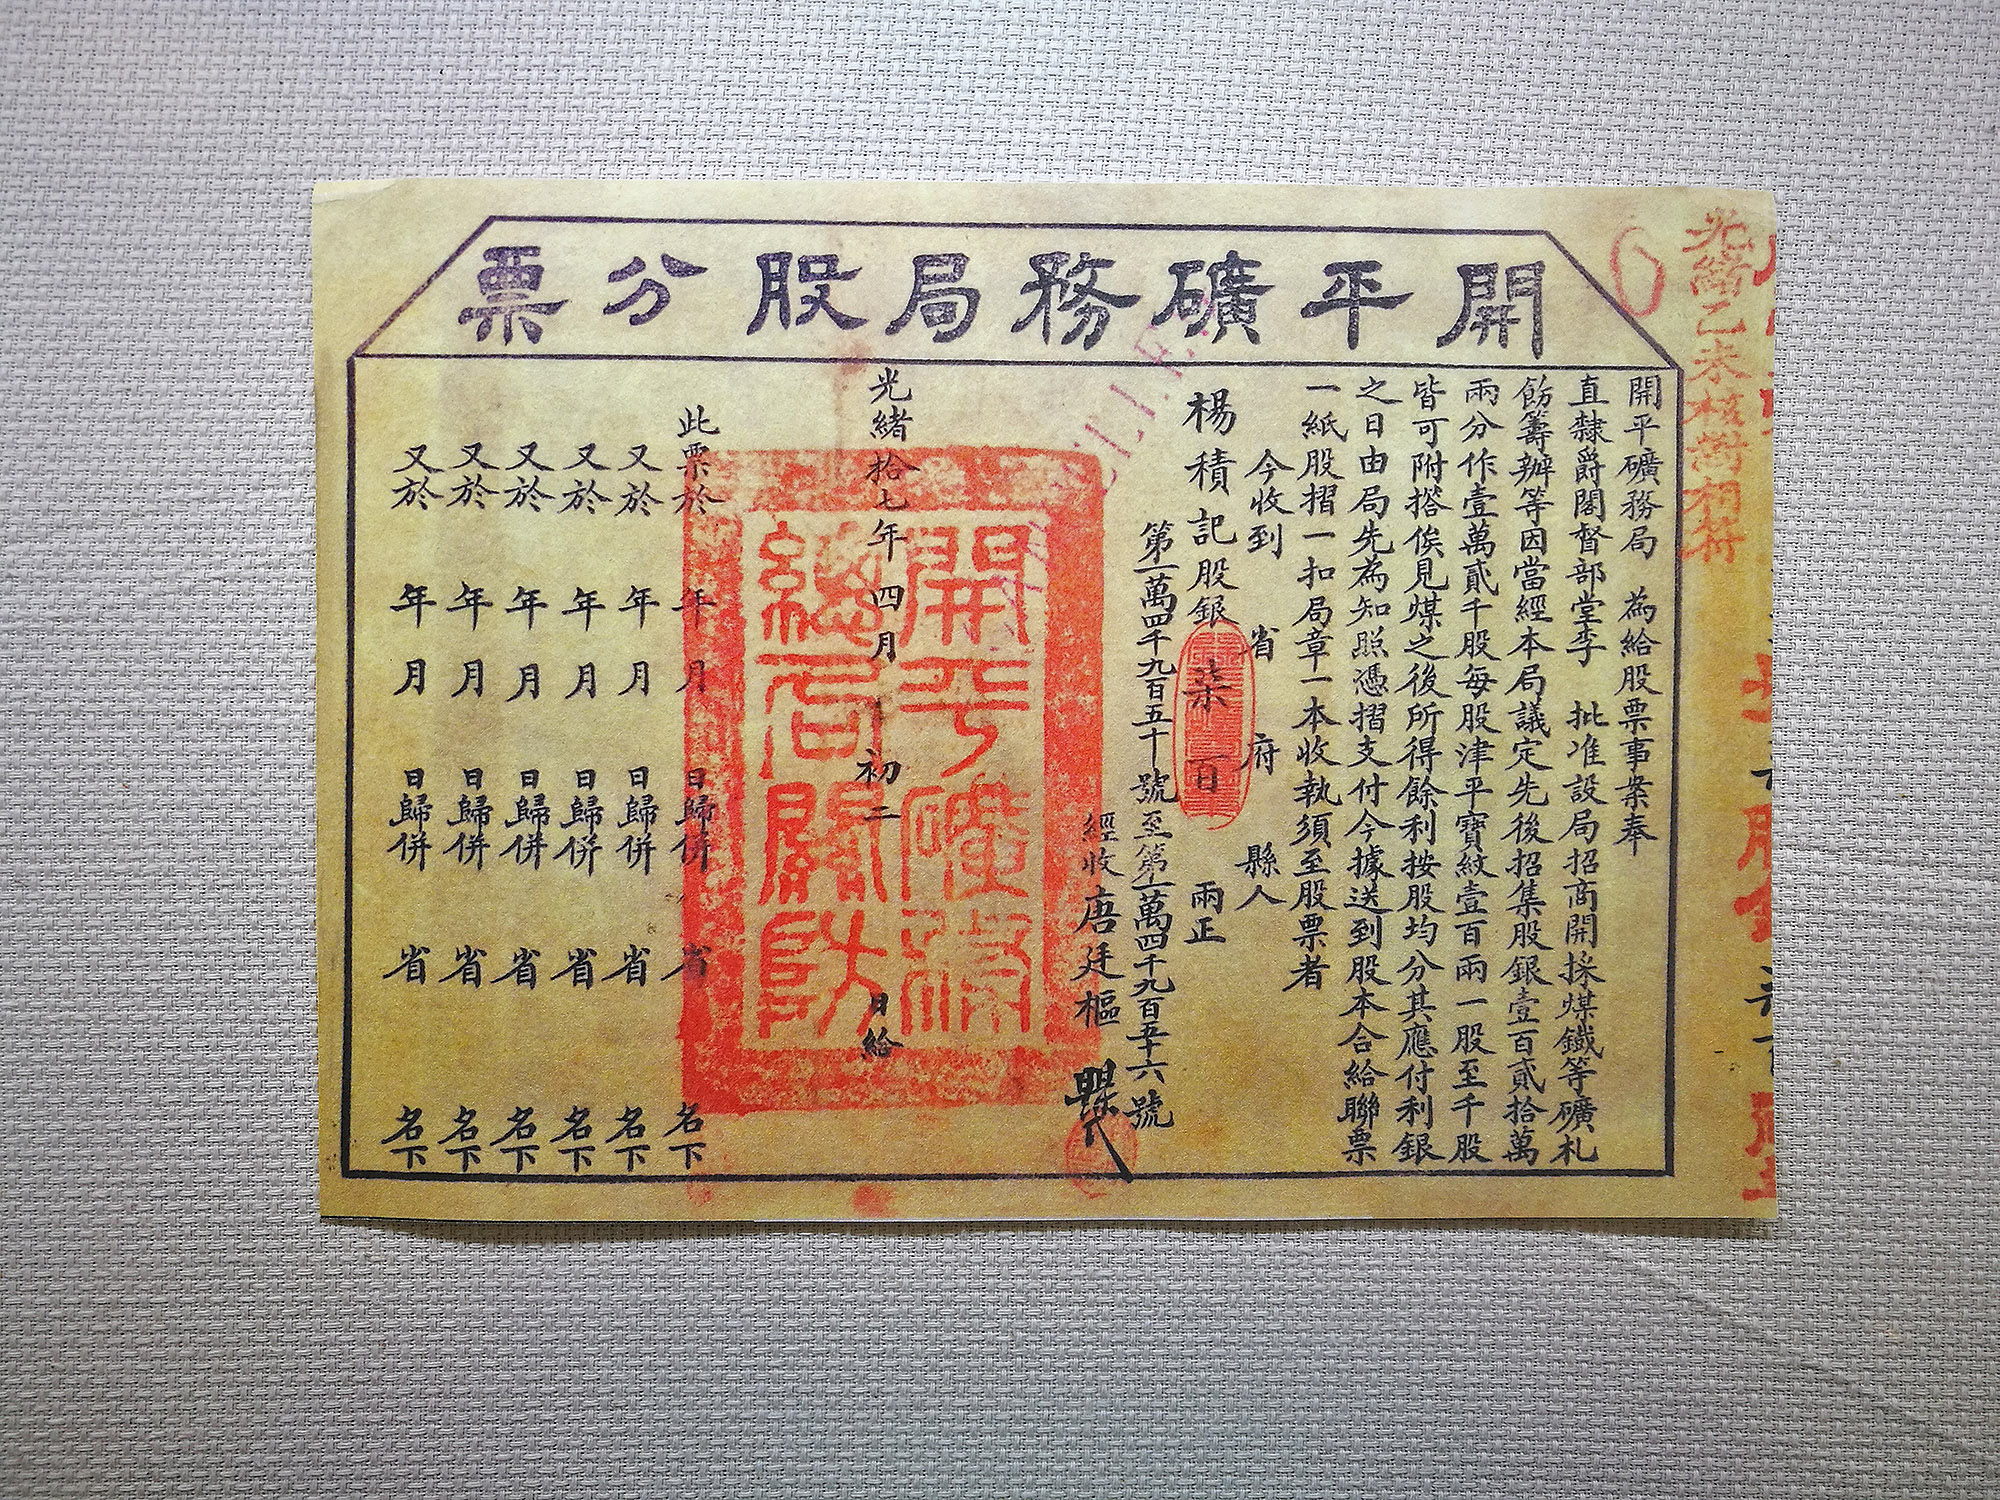 開平礦務局股分票
光緒乙未核對相符
開平礦務局 為給股票事案奉
直隸爵閣督部堂李 批准設局招商開採煤鐵等礦札
飭籌辦等因當經本局議定先後招集股銀壹百貳拾萬
兩分作壹萬貳千股每股津平寶紋壹百兩一股至千股
皆可附搭俟見煤之後所得餘利按股均分其應付利銀
之日由局先為知照憑摺支付今據送到股本合給聯票
一紙股摺一扣局章一本收執須至股票者
今收到 省 府 縣人
楊積記股銀 柒百 兩正
第一萬四千九百五十號至第一萬四千九百五十六號
經收唐廷樞
光緒拾七年四月 初二 日給
開平礦務
總局關防
此票於 年 月 日歸併 省 名下
又於 年 月 日歸併 省 名下
又於 年 月 日歸併 省 名下
又於 年 月 日歸併 省 名下
又於 年 月 日歸併 省 名下
又於 年 月 日歸併 省 名下